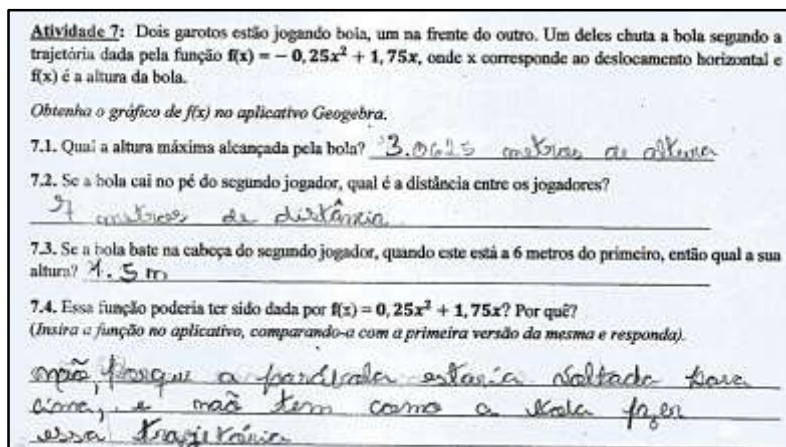 Atividade 7: Dois garotos estão jogando bola, um na frente do outro. Um deles chuta a bola segundo a
trajetória dada pela função f(x) = − 0,25x² + 1,75x, onde x corresponde ao deslocamento horizontal e
f(x) é a altura da bola.
Obtenha o gráfico de f(x) no aplicativo Geogebra.
7.1. Qual a altura máxima alcançada pela bola? 3.0625 metros de altura
7.2. Se a bola cai no pé do segundo jogador, qual é a distância entre os jogadores?
7 metros de distância
7.3. Se a bola bate na cabeça do segundo jogador, quando este está a 6 metros do primeiro, então qual a sua
altura? 1.5 m
7.4. Essa função poderia ter sido dada por f(x) = 0,25x² + 1,75x? Por quê?
(Insira a função no aplicativo, comparando-a com a primeira versão da mesma e responda).
não, porque a parábola estaria voltada para
cima, e não tem como a bola fazer
essa trajetória